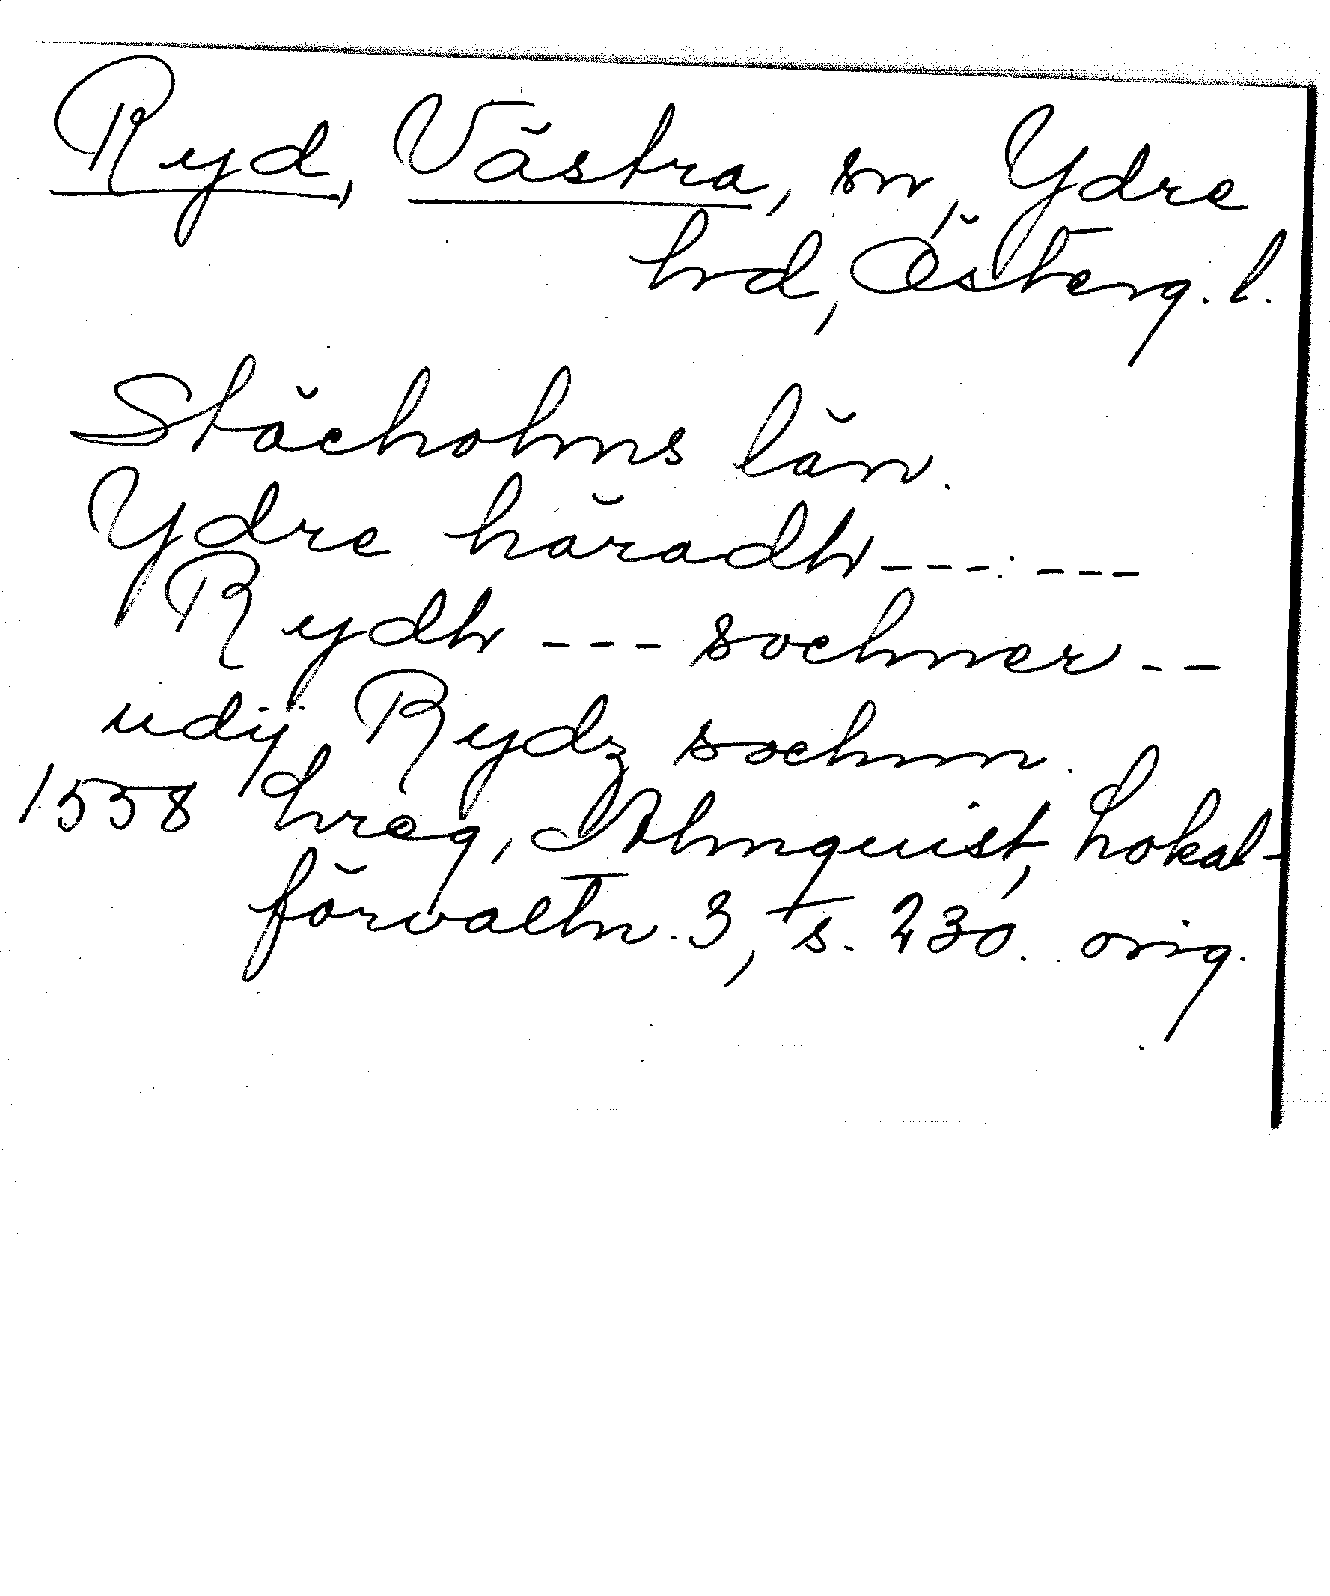 Ryd, Västra, sn, Ydre
hd, Österg. l.
Stächolms län.
Ydre häradh --- ---
Rydh --- sochner --
udij Rydz sochnn.
1558 hreg, Almquist, Lokal-
förvaltn. 3, s. 230. orig.